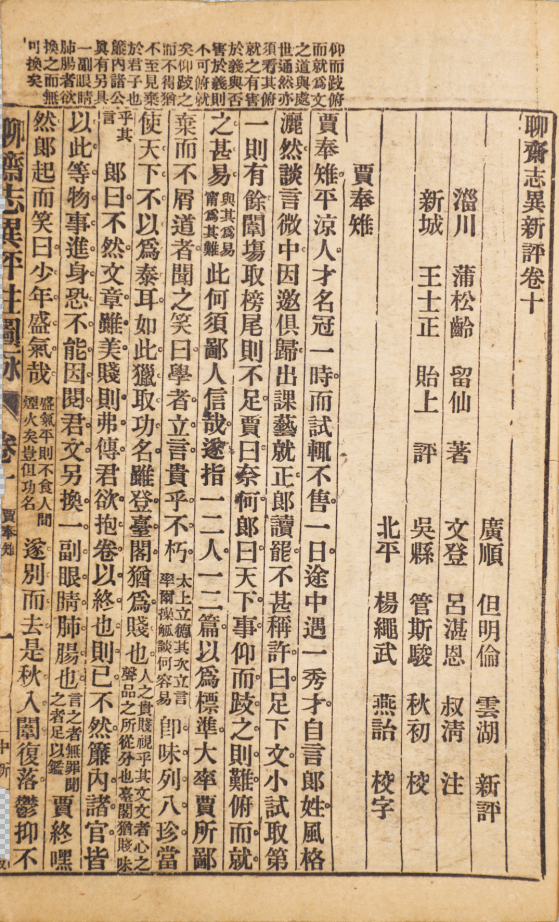 聊齋志異新評卷十
淄川 蒲松齡 留仙 著
新城 王士正 貽上 評
廣順 但明倫 雲湖 新評
文登 呂湛恩 叔清 注
吳縣 管斯駿 秋初 校
北平 楊繩武 燕詒 校字
賈奉雉
賈奉雉平涼人才名冠一時而試輒不售一日途中遇一秀才自言郎姓風格
灑然談言微中因邀俱歸出課藝就正郎讀罷不甚稱許曰足下文小試取第
一則有餘闈塲取榜尾則不足賈曰奈何郎曰天下事仰而跂之則難俯而就
之甚易與其爲易甯爲其難此何須鄙人信哉遂指一二人一二篇以爲標準大率賈所鄙
棄而不屑道者聞之笑曰學者立言貴乎不朽太上立德其次立言率爾操觚談何容易卽味列八珍當
使天下不以爲泰耳如此獵取功名雖登臺閣猶爲賤也人之貴賤視乎其文文者心之聲品之所從分也臺閣猶賤味
乎其言郎曰不然文章雖美賤則弗傳君欲抱卷以終也則已不然簾內諸官皆
以此等物事進身恐不能因閱君文另換一副眼睛肺腸也言之者無罪聞之者足以鑑賈終嘿
然郎起而笑曰少年盛氣哉盛氣平則不食人間煙火矣豈但功名遂別而去是秋入闈復落鬱抑不
仰而跂俯
而就爲文
之道與處
世通然亦
須看其俯
就之有害
於義與否
害於義則
不可俯就
矣仰跂之
而不得猶
不至見棄
於君子也
簾內諸公
眞有另具
一副眼睛
肺腸者欲
換之而無
可換矣
聊齋志異評註圖詠 卷十 賈奉雉 一